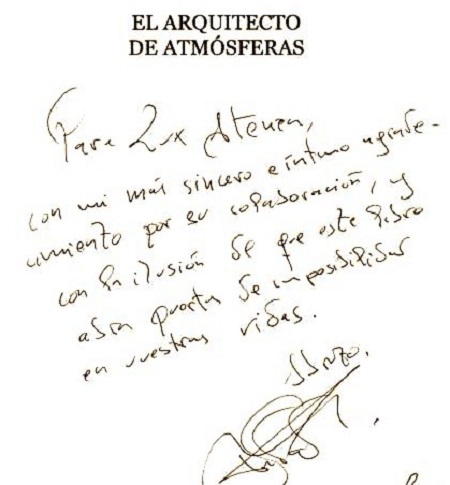 EL ARQUITECTO
DE ATMÓSFERAS
Para Lux Atenea,
con mi más sincero e íntimo agrade-
cimiento por su colaboración, y
con la ilusión de que este libro
abra puertas de imposibilidad
en vuestras vidas.
Abrazo.